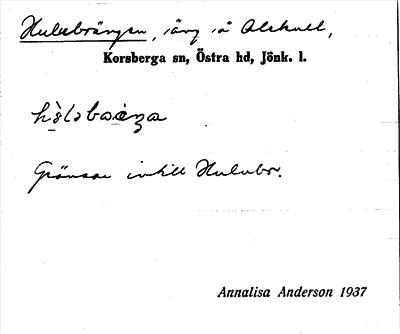 Hulebrängen, äng i Alshult,
Korsberga sn, Östra hd, Jönk. l.
Gränsar intill Hulubr.
Annalisa Anderson 1937